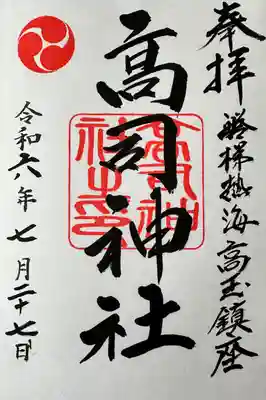 奉拝
磐梯熱海高玉鎮座
高司神社
令和六年七月二十七日